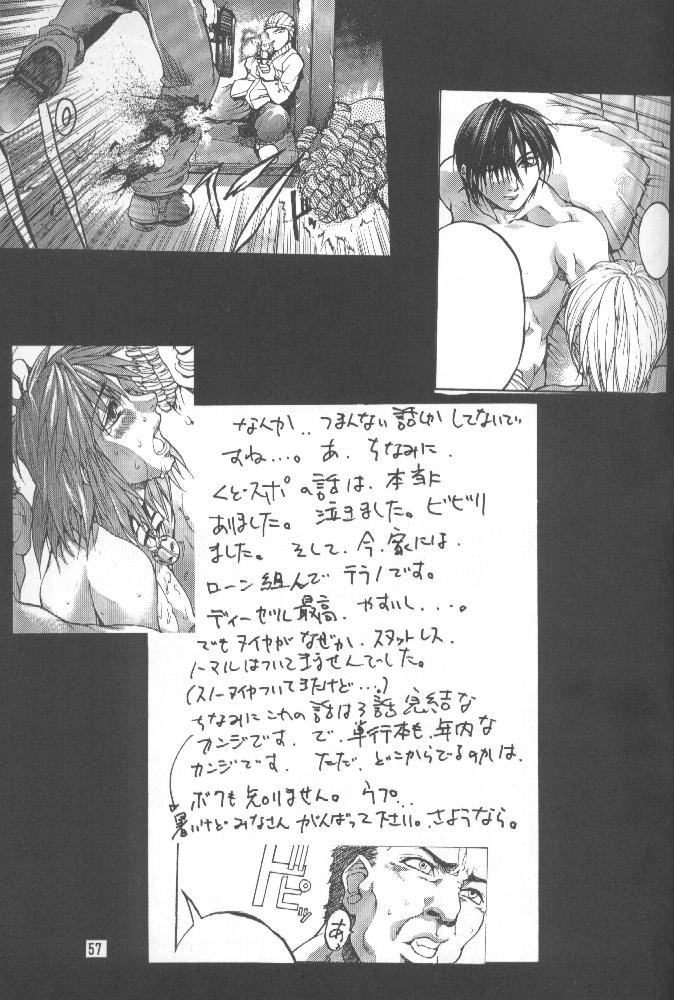 なんか‥つまんない話しか してないで
すね…。 あ、ちなみに、
くど・スポの話は、本当に
ありました。 泣きました。ビビリ
ました。 そして、今、家には、
ローン組んで テラノです。
ディーゼル最高、やすいし...。
でもタイヤがなぜか、スタットレス、
ノーマルはついてませんでした。
(スノータイヤついてきたけど…。)
ちなみにこれの話は3話完結な
カンジです、で、単行本も、年内な
カンジです、 ただ、どこからでるのかは、
ボクも知りません。 ウプ...
暑いけど みなさん がんばって下さい。さようなら。
あ、
57